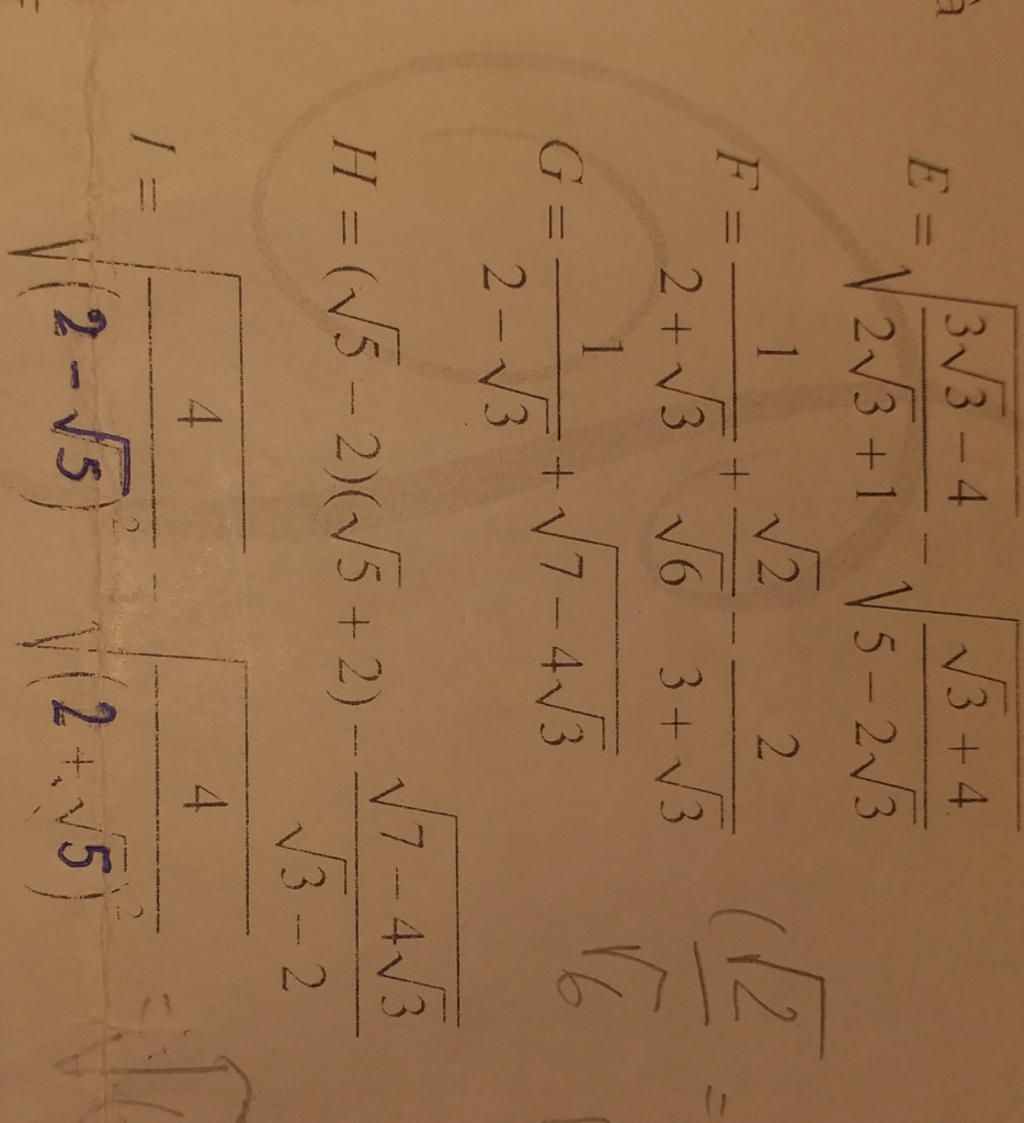 à
E = √((3√3 − 4)/(2√3 + 1)) − √((√3 + 4)/(5 − 2√3))
F = 1/(2 + √3) + √2/√6 − 2/(3 + √3)
(√2/√6 =
G = 1/(2 − √3) + √(7 − 4√3)
H = (√5 − 2)(√5 + 2) − √(7 − 4√3)/(√3 − 2)
I = √(4/(2 − √5)²) − √(4/(2 + √5)²) =